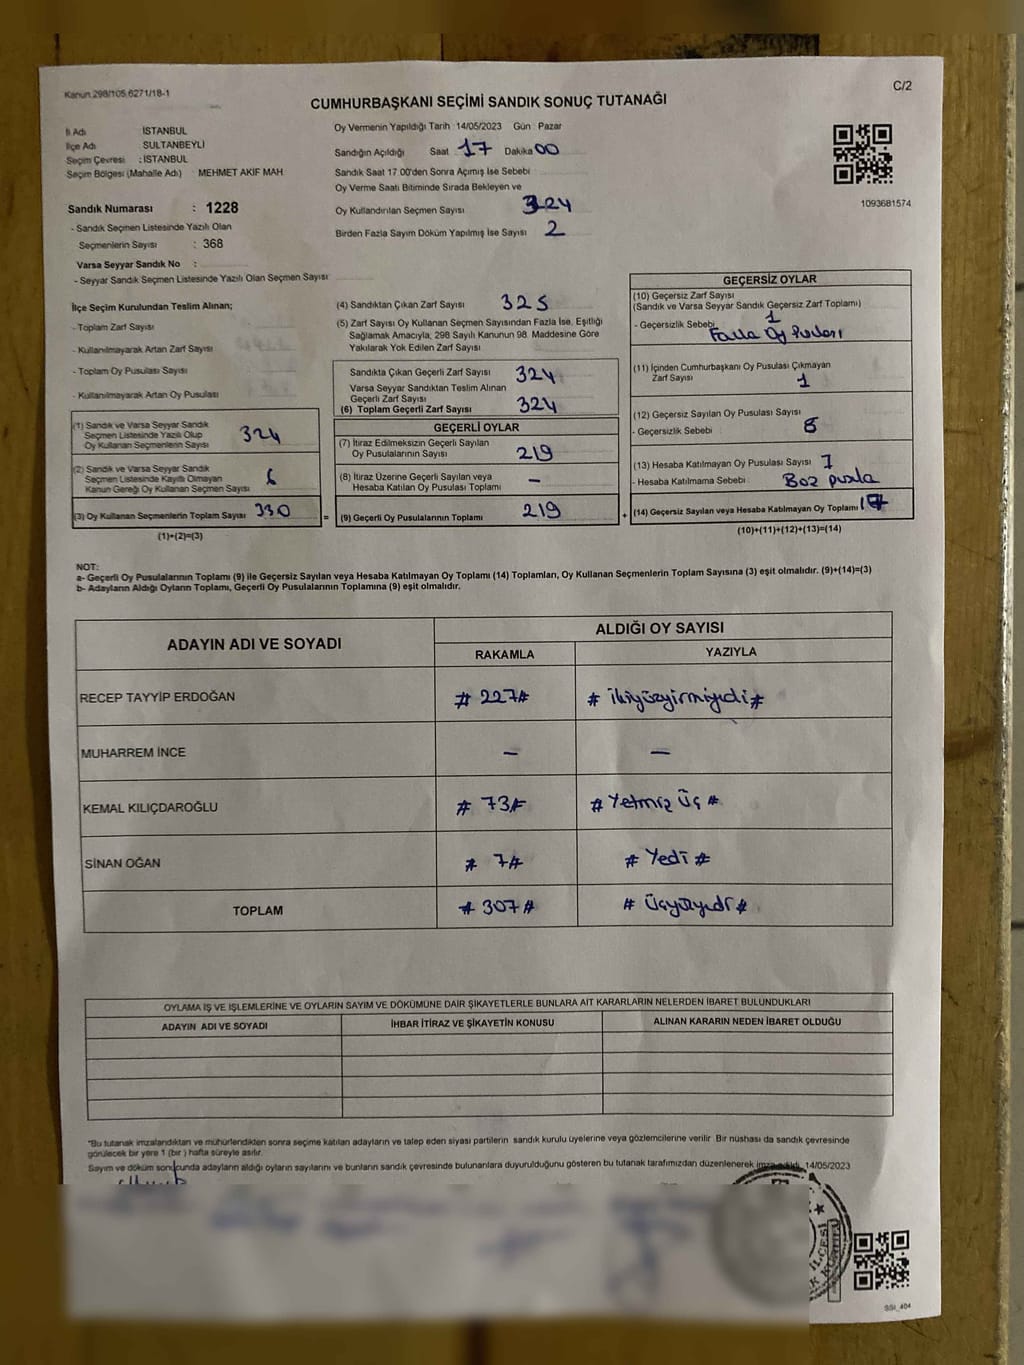 Kanun.298/105,6271/18-1
C/2
CUMHURBAŞKANI SEÇİMİ SANDIK SONUÇ TUTANAĞI
İl Adı İSTANBUL
İlçe Adı SULTANBEYLİ
Seçim Çevresi : İSTANBUL
Seçim Bölgesi (Mahalle Adı) MEHMET AKİF MAH
Sandık Numarası : 1228
- Sandık Seçmen Listesinde Yazılı Olan
Seçmenlerin Sayısı : 368
Varsa Seyyar Sandık No :
- Seyyar Sandık Seçmen Listesinde Yazılı Olan Seçmen Sayısı
Oy Vermenin Yapıldığı Tarih 14/05/2023 Gün Pazar
Sandığın Açıldığı Saat 17 Dakika 00
Sandık Saat 17 00'den Sonra Açımış İse Sebebi
Oy Verme Saati Bitiminde Sırada Bekleyen ve
Oy Kullandırılan Seçmen Sayısı 324
Birden Fazla Sayım Döküm Yapılmış İse Sayısı 2
1093681574
İlçe Seçim Kurulundan Teslim Alınan;
- Toplam Zarf Sayısı
- Kullanılmayarak Artan Zarf Sayısı
- Toplam Oy Pusulası Sayısı
- Kullanılmayarak Artan Oy Pusulası
(1) Sandık ve Varsa Seyyar Sandık
Seçmen Listesinde Yazılı Olup
Oy Kullanan Seçmenlerin Sayısı 324
(2) Sandık ve Varsa Seyyar Sandık
Seçmen Listesinde Kayıtlı Olmayan
Kanun Gereği Oy Kullanan Seçmen Sayısı 6
(3) Oy Kullanan Seçmenlerin Toplam Sayısı 330
(1)+(2)=(3)
(4) Sandıktan Çıkan Zarf Sayısı 325
(5) Zarf Sayısı Oy Kullanan Seçmen Sayısından Fazla İse, Eşitliği
Sağlamak Amacıyla, 298 Sayılı Kanunun 98. Maddesine Göre
Yakılarak Yok Edilen Zarf Sayısı
Sandıkta Çıkan Geçerli Zarf Sayısı 324
Varsa Seyyar Sandıktan Teslim Alınan
Geçerli Zarf Sayısı
(6) Toplam Geçerli Zarf Sayısı 324
GEÇERLİ OYLAR
(7) İtiraz Edilmeksizin Geçerli Sayılan
Oy Pusulasının Sayısı 219
(8) İtiraz Üzerine Geçerli Sayılan veya
Hesaba Katılan Oy Pusulası Toplamı -
= (9) Geçerli Oy Pusulalarının Toplamı 219 +
GEÇERSİZ OYLAR
(10) Geçersiz Zarf Sayısı
(Sandık ve Varsa Seyyar Sandık Geçersiz Zarf Toplamı)
1
- Geçersizlik Sebebi Fazla Oy Pusulası
(11) İçinden Cumhurbaşkanı Oy Pusulası Çıkmayan
Zarf Sayısı 1
(12) Geçersiz Sayılan Oy Pusulası Sayısı
- Geçersizlik Sebebi 8
(13) Hesaba Katılmayan Oy Pusulası Sayısı 7
- Hesaba Katılmama Sebebi Boz pusla
(14) Geçersiz Sayılan veya Hesaba Katılmayan Oy Toplamı 17
(10)+(11)+(12)+(13)=(14)
NOT:
a- Geçerli Oy Pusulalarının Toplamı (9) ile Geçersiz Sayılan veya Hesaba Katılmayan Oy Toplamı (14) Toplamları, Oy Kullanan Seçmenlerin Toplam Sayısına (3) eşit olmalıdır. (9)+(14)=(3)
b- Adayların Aldığı Oyların Toplamı, Geçerli Oy Pusulalarının Toplamına (9) eşit olmalıdır.
ADAYIN ADI VE SOYADI ALDIĞI OY SAYISI
RAKAMLA YAZIYLA
RECEP TAYYİP ERDOĞAN # 227# # ikiyüzyirmiyedi #
MUHARREM İNCE - -
KEMAL KILIÇDAROĞLU # 73# # Yetmiş Üç #
SİNAN OĞAN # 7# # Yedi #
TOPLAM # 307# # Üçyüzyedi #
OYLAMA İŞ VE İŞLEMLERİNE VE OYLARIN SAYIM VE DÖKÜMÜNE DAİR ŞİKAYETLERLE BUNLARA AİT KARARLARIN NELERDEN İBARET BULUNDUKLARI
ADAYIN ADI VE SOYADI İHBAR İTİRAZ VE ŞİKAYETİN KONUSU ALINAN KARARIN NEDEN İBARET OLDUĞU
*Bu tutanak imzalandıktan ve mühürlendikten sonra seçime katılan adayların ve talep eden siyasi partilerin sandık kurulu üyelerine veya gözlemcilerine verilir Bir nüshası da sandık çevresinde
görülecek bir yere 1 (bir) hafta süreyle asılır.
Sayım ve döküm sonucunda adayların aldığı oyların sayılarını ve bunların sandık çevresinde bulunanlara duyurulduğunu gösteren bu tutanak tarafımızdan düzenlenerek imza edildi. 14/05/2023
İLÇESİ
SSI_404